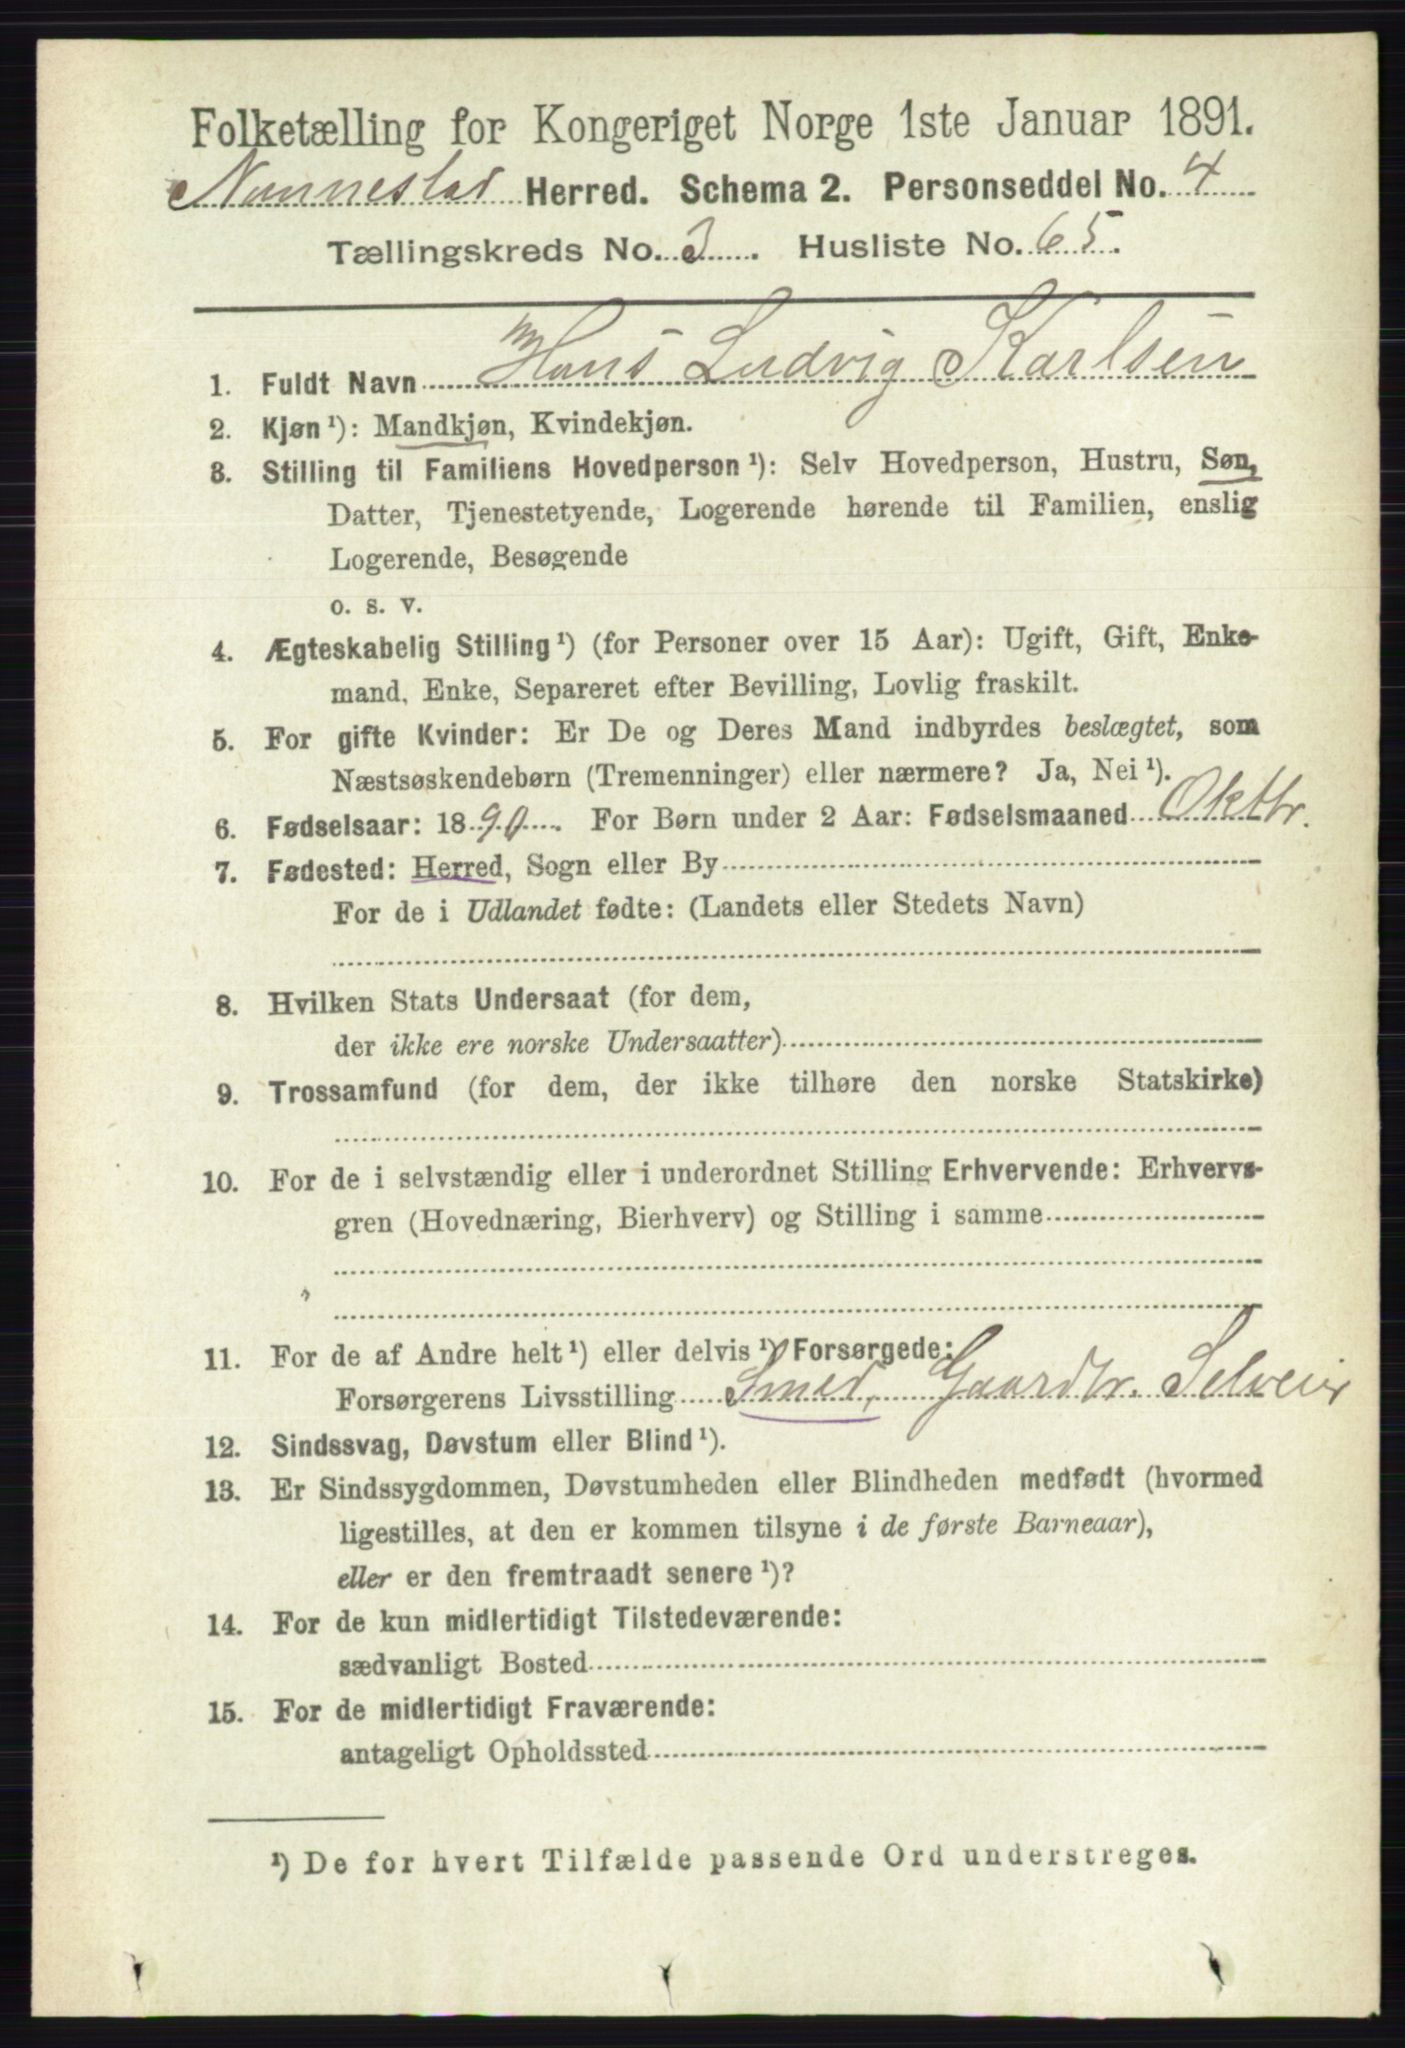 Folketælling for Kongeriget Norge 1ste Januar 1891.
Nannestad Herred. Schema 2. Personseddel No. 4
Tællingskreds No. 3. Husliste No. 65.
1. Fuldt Navn Hans Ludvig Karlsen
2. Kjøn ¹): Mandkjøn, Kvindekjøn.
3. Stilling til Familiens Hovedperson ¹): Selv Hovedperson, Hustru, Søn,
Datter, Tjenestetyende, Logerende hørende til Familien, enslig
Logerende, Besøgende
o. s. v.
4. Ægteskabelig Stilling ¹) (for Personer over 15 Aar): Ugift, Gift, Enke-
mand, Enke, Separeret efter Bevilling, Lovlig fraskilt.
5. For gifte Kvinder: Er De og Deres Mand indbyrdes beslægtet, som
Næstsøskendebørn (Tremenninger) eller nærmere? Ja, Nei ¹).
6. Fødselsaar: 1890. For Børn under 2 Aar: Fødselsmaaned Oktbr.
7. Fødested: Herred, Sogn eller By
For de i Udlandet fødte: (Landets eller Stedets Navn)
8. Hvilken Stats Undersaat (for dem,
der ikke ere norske Undersaatter)
9. Trossamfund (for dem, der ikke tilhøre den norske Statskirke)
10. For de i selvstændig eller i underordnet Stilling Erhvervende: Erhvervs-
gren (Hovednæring, Bierhverv) og Stilling i samme
11. For de af Andre helt ¹) eller delvis ¹) Forsørgede:
Forsørgerens Livsstilling Smed, Gaardbr. Selveier
12. Sindssvag, Døvstum eller Blind ¹).
13. Er Sindssygdommen, Døvstumheden eller Blindheden medfødt (hvormed
ligestilles, at den er kommen tilsyne i de første Barneaar),
eller er den fremtraadt senere ¹)?
14. For de kun midlertidigt Tilstedeværende:
sædvanligt Bosted
15. For de midlertidigt Fraværende:
antageligt Opholdssted
¹) De for hvert Tilfælde passende Ord understreges.